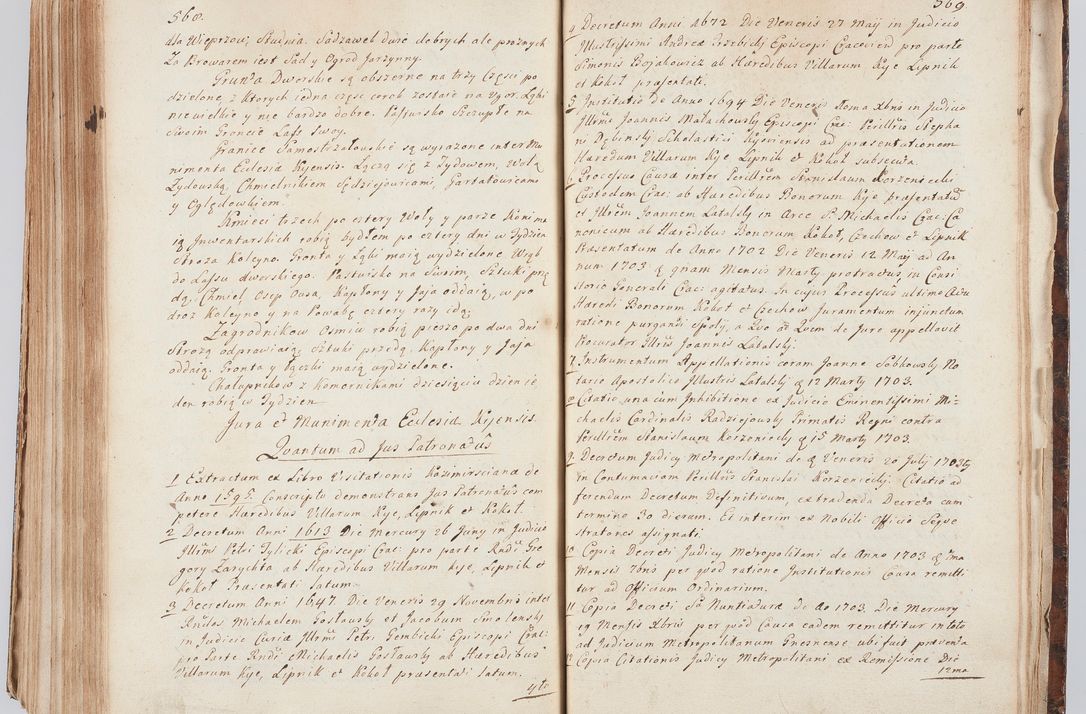 568.
dla Wieprzow, Studnia. Sadzawek dwie dobrych ale prożnych
Za Browarem iest Sad y Ogrod Jarzynny.
Grunta Dworskie są obszerne na trzy Części po
dzielone, z ktorych iedna częsc corok zostaie na Ugor. Łąki
niewielkie y nie bardzo dobre. Pastwisko Szczupłe na
Swoim Gruncie Lass Swoy.
Granice Samostrzałowskie są wyrażone inter Mu
nimenta Eclesiæ Kijensis. Łączą się z Żydowem, Wolą
Żydowską, Chmielnikiem Sędziejowicami, Gartatowicami
y Oględowkiem.
Kmieci trzech po cztery Woły y parze Koni ma
ią Inwentarskich robią bydłem po cztery dni w Tydzien
Stroża Koleyno. Grunta y Łąki maią wydzielone. Wrąb
do Lassu dworskiego. Pastwisko na Swoim, Sztuki prze
dą, Chmiel Osep Owsa, Kapłony y Jaja oddaią, w po
droż Koleyno y na Powabę cztery razy idą.
Zagrodnikow Osmiu robią pieszo po dwa dni
Strożą odprawiaią, Sztuki przędą, Kapłony y Jaja
oddaią. Grunta y Łączki maią wydzielone.
Chałupnikow z komornikami dziesięciu dzien ie
den robią w Tydzien
Jura et Munimenta Eclesiæ Kijensis.
Quantum ad Jus Patronatus
1 Extractum ex Libro Visitationis Kazimirscianæ de
Anno 1595. Conscripto demonstrans Jus Patronatus com
petere Hæredibus Villarum Kije, Lipnik et Kokot.
2 Decretum Anni 1613 Die Mercurij 26 Junij in Judicio
Illmi Petri Tylicki Episcopi Crac: pro parte Rndi Gre
gory Zarychta ab Hæredibus Villarum Kije, Lipnik et
Kokot Præsentati latum.
3 Decretum Anni 1647. Die Veneris 29 Novembris inter
Rndos Michaelem Gosławski et Jacobum Smolenski
in Judicio Curiæ Illmi Petri Gembicki Episcopi Crac:
pro Parte Rndi Michaelis Gosławski ab Hæredibus
Villarum Kije, Lipnik et Kokot præsentati latum.
4to
569.
4 Decretum Anni 1672 Die Veneris 27 Maij in Judicio
Illustrissimi Andreæ Trzebicki Episcopi Cracovien pro parte
Simonis Bojakowicz ab Hæredibus Villarum Kije Lipnik
et Kokot præsentati.
5 Institutio de Anno 1694 Die Veneris Xbris in Judicio
Illmi Joannis Małachowski Episcopi Crac: Perillris Stepha
ni Dębinski Scholastici Kijoviensis ad præsentationem
Hæredum Villarum Kije Lipnik et Kokot subsecuta
6 Processus Causæ inter Perillrem Stanislaum Korzeniecki
Custodem Crac: ab Hæredibus Bonorum Kije præsentatum
et Illrem Joannem Latalski in Arce S. Michaelis Crac: Ca
nonicum ab Hæredibus Bonorum Kokot, Czechow et Lipnik
Præsentatum de Anno 1702 Die Veneris 12 Maij ad An
num 1703 et Mensis Marty protractus, in Consi
storio Generali Crac: agitatus. In cujus Processus ultimo Actu
Hæredi Bonorum Kokot et Czechow Juramentum injunctum
ratione purgandi Spoly, a Quo ad Quem de Jure appellavit
Procurator Illris Joannis Latalski.
7 Instrumentum Appellationis coram Joanne Sobkowski No
tario Apostolico Illustris Latalski 12 Marty 1703.
8 Citatio una cum Inhibitione ex Judicio Eminentissimi Mi-
chaelis Cardinalis Radziejowski Primatis Regni contra
Perillrem Stanislaum Korzeniecki 15 Marty 1703.
9 Decretum Judicij Metropolitani de Veneris 20 Julij 1703
in Contumaciam Perillris Stanislai Korzeniecki. Citatio ad
ferendum Decretum Definitivum, extradenda Decreto cum
termino 30 dierum. Et interim ex Nobili Officio Seque
stratores assignati.
10 Copia Decreti Judicij Metropolitani de Anno 1703 1ma
Mensis 7bris per quod ratione Institutionis Causa remitti
tur ad Officium Ordinarium.
11 Copia Decreti Nuntiaturæ de Ao 1703. Die Mercurij
19 Mensis Xbris per quod Causa eadem remittitur in toto
ad Judicium Metropolitanum Gnesnense ubi fuit præventa
12 Copia Citationis Judicij Metropolitani ex Remissione Die
12ma